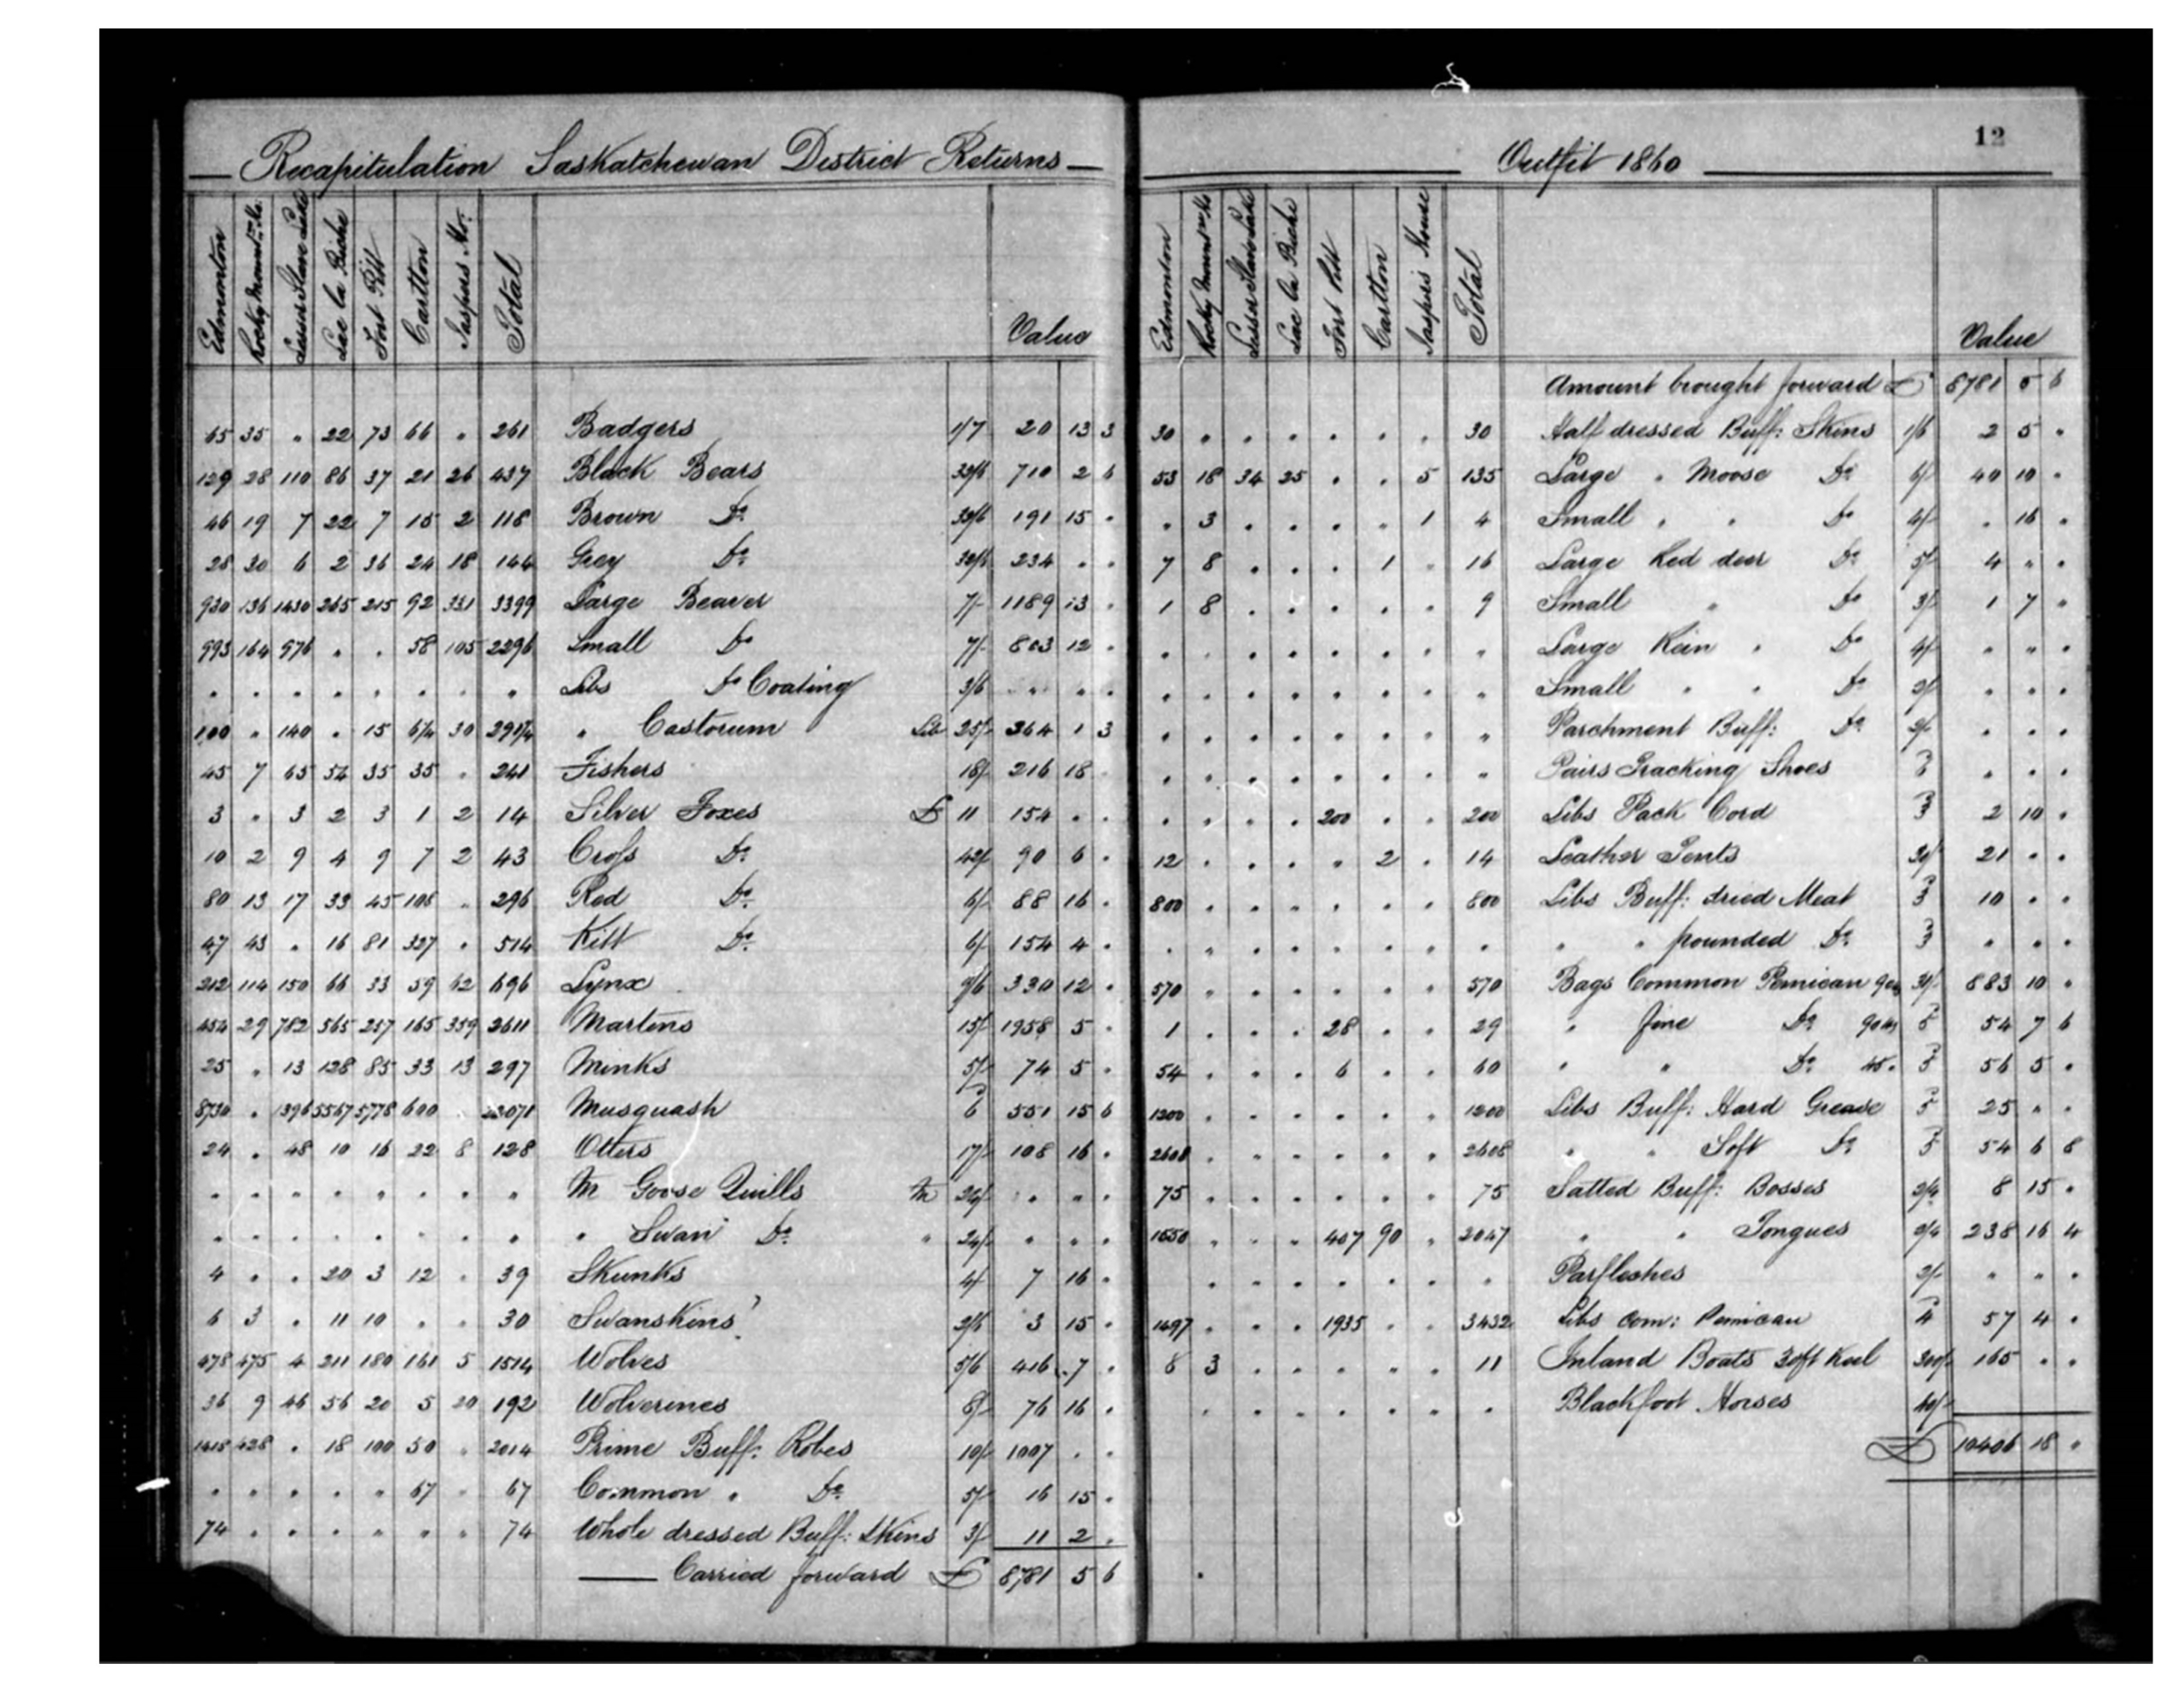 Recapitulation Saskatchewan District Returns
Edmonton Rocky Mount.n Ho. Lesser Slave Lake Lac la Biche Fort Pitt Carlton Jaspers Ho. Total Value
65 35 " 22 73 66 " 261 Badgers 1/7 20 13 3
129 28 110 86 37 21 26 437 Black Bears 32/6 710 2 6
46 19 7 22 7 15 2 118 Brown Do 32/6 191 15 "
28 30 6 2 36 24 18 144 Grey Do 32/6 234 " "
930 136 1430 265 215 92 331 3399 Large Beaver 7/- 1189 13 "
993 164 976 " " 58 105 2296 Small Do 7/- 803 12 "
" " " " " " " " Libs Do Coating 3/6 " " "
100 " 140 " 15 6¼ 30 291¼ " Castorum Lib 25/- 364 1 3
45 7 65 54 35 35 " 241 Fishers 18/- 216 18
3 " 3 2 3 1 2 14 Silver Foxes £ 11 154 " "
10 2 9 4 9 7 2 43 Cross Do 42/- 90 6 "
80 13 17 33 45 108 " 296 Red Do 6/- 88 16 "
47 43 " 16 81 327 " 514 Kitt Do 6/- 154 4 "
212 114 150 66 33 59 62 696 Lynx 9/6 330 12 "
454 29 782 565 257 165 359 2611 Martens 15/- 1958 5 "
25 " 13 128 85 33 13 297 Minks 5/- 74 5 "
8730 " 1396 5567 5778 600 " 22071 Musquash 6 551 15 6
24 " 48 10 16 22 8 128 Otters 17/- 108 16 "
" " " " " " " " M Goose Quills M 24/- " " "
" " " " " " " " " Swan Do " 24/- " " "
4 " " 20 3 12 " 39 Skunks 4/- 7 16 "
6 3 " 11 10 " " 30 Swanskins 2/6 3 15 "
478 475 4 211 180 161 5 1514 Wolves 5/6 416 7 "
36 9 46 56 20 5 20 192 Wolverines 8/- 76 16 "
1418 428 " 18 100 50 " 2014 Prime Buff: Robes 10/- 1007 " "
" " " " " 67 " 67 Common " Do 5/- 16 15 "
74 " " " " " " 74 Whole dressed Buff: Skins 3/- 11 2 "
Carried forward £ 8781 5 6
12
Outfit 1860
Edmonton Rocky Mount.n Ho Lesser Slave Lake Lac la Biche Fort Pitt Carlton Jaspers House Total Value
Amount brought forward £ 8781 5 6
30 " " " " " " 30 Half dressed Buff: Skins 1/6 2 5 "
53 18 34 25 " " 5 135 Large " Moose Do 6/- 40 10 "
" 3 " " " " 1 4 Small " " Do 4/- " 16 "
7 8 " " " 1 " 16 Large Red deer Do 5/- 4 " "
1 8 " " " " " 9 Small " Do 3/- 1 7 "
" " " " " " " " Large Rein " Do 4/- " " "
" " " " " " " " Small " " Do " " "
" " " " " " " " Parchment Buff: Do 2/- " " "
" " " " " " " " Pairs Tracking Shoes 6 " " "
" " " " 200 " " 200 Libs Pack Cord 3 2 10 "
12 " " " " 2 " 14 Leather Tents 30/ 21 " "
800 " " " " " " 800 Libs Buff: dried Meat 3 10 " "
" " " " " " " " " " pounded Do 3 " " "
570 " " " " " " 570 Bags Common Pemican 90 lbs 31/- 883 10 "
1 " " " 28 " " 29 " fine Do 90 lbs 5 54 7 6
54 " " " 6 " " 60 " " Do 45 " 5 56 5 "
1200 " " " " " " 1200 Libs Buff: Hard Grease 5 25 " "
2608 " " " " " " 2608 " " Soft Do 5 54 6 8
75 " " " " " " 75 Salted Buff: Bosses 2/4 8 15 "
1550 " " " 407 90 " 2047 " " Tongues 2/4 238 16 4
" " " " " " " Parfleshes 2/- " " "
1497 " " " 1935 " " 3432 Libs com: Pemican 4 57 4 "
8 3 " " " " " 11 Inland Boats 30ft Keel 300/- 165 " "
" " " " " " " Blackfoot Horses 40/-
£ 10406 18 "